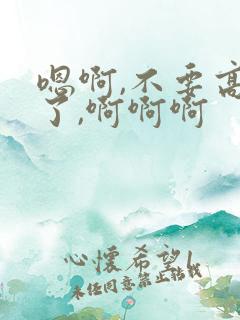 嗯啊,不要高
了,啊啊啊
心懷希望!
未经同意禁止转载